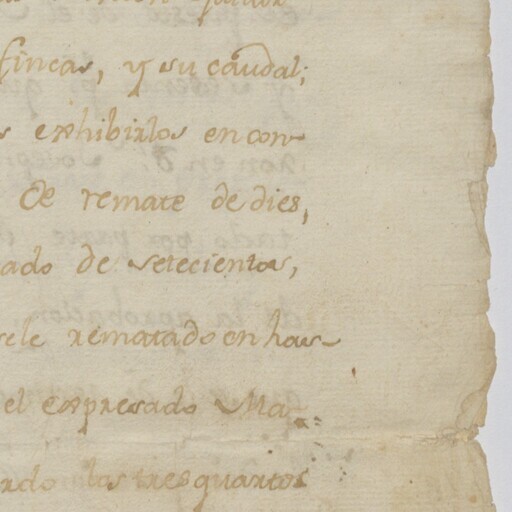 fincas, y su caudal;
s exhibirlos en con-
de remate de dies,
ado de setecientos,
sele rematado en has-
el expresado Ma-
ndo las tres quartos